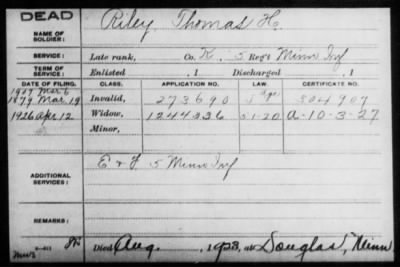 DEAD
NAME OF SOLDIER: Riley, Thomas H.
SERVICE: Late rank, Co. K, 5 Reg't Minn Inf
TERM OF SERVICE: Enlisted , 1 Discharged , 1
DATE OF FILING. CLASS. APPLICATION NO. LAW. CERTIFICATE NO.
1917 Mar 6
1879 Mar 19 Invalid, 273690 304907
1926 Apr 12 Widow, 1244236 5-1-20 A-10-3-27
Minor,
ADDITIONAL SERVICES: E & F 5 Minn Inf
REMARKS:
Died Aug. , 1923, at Douglas, Minn